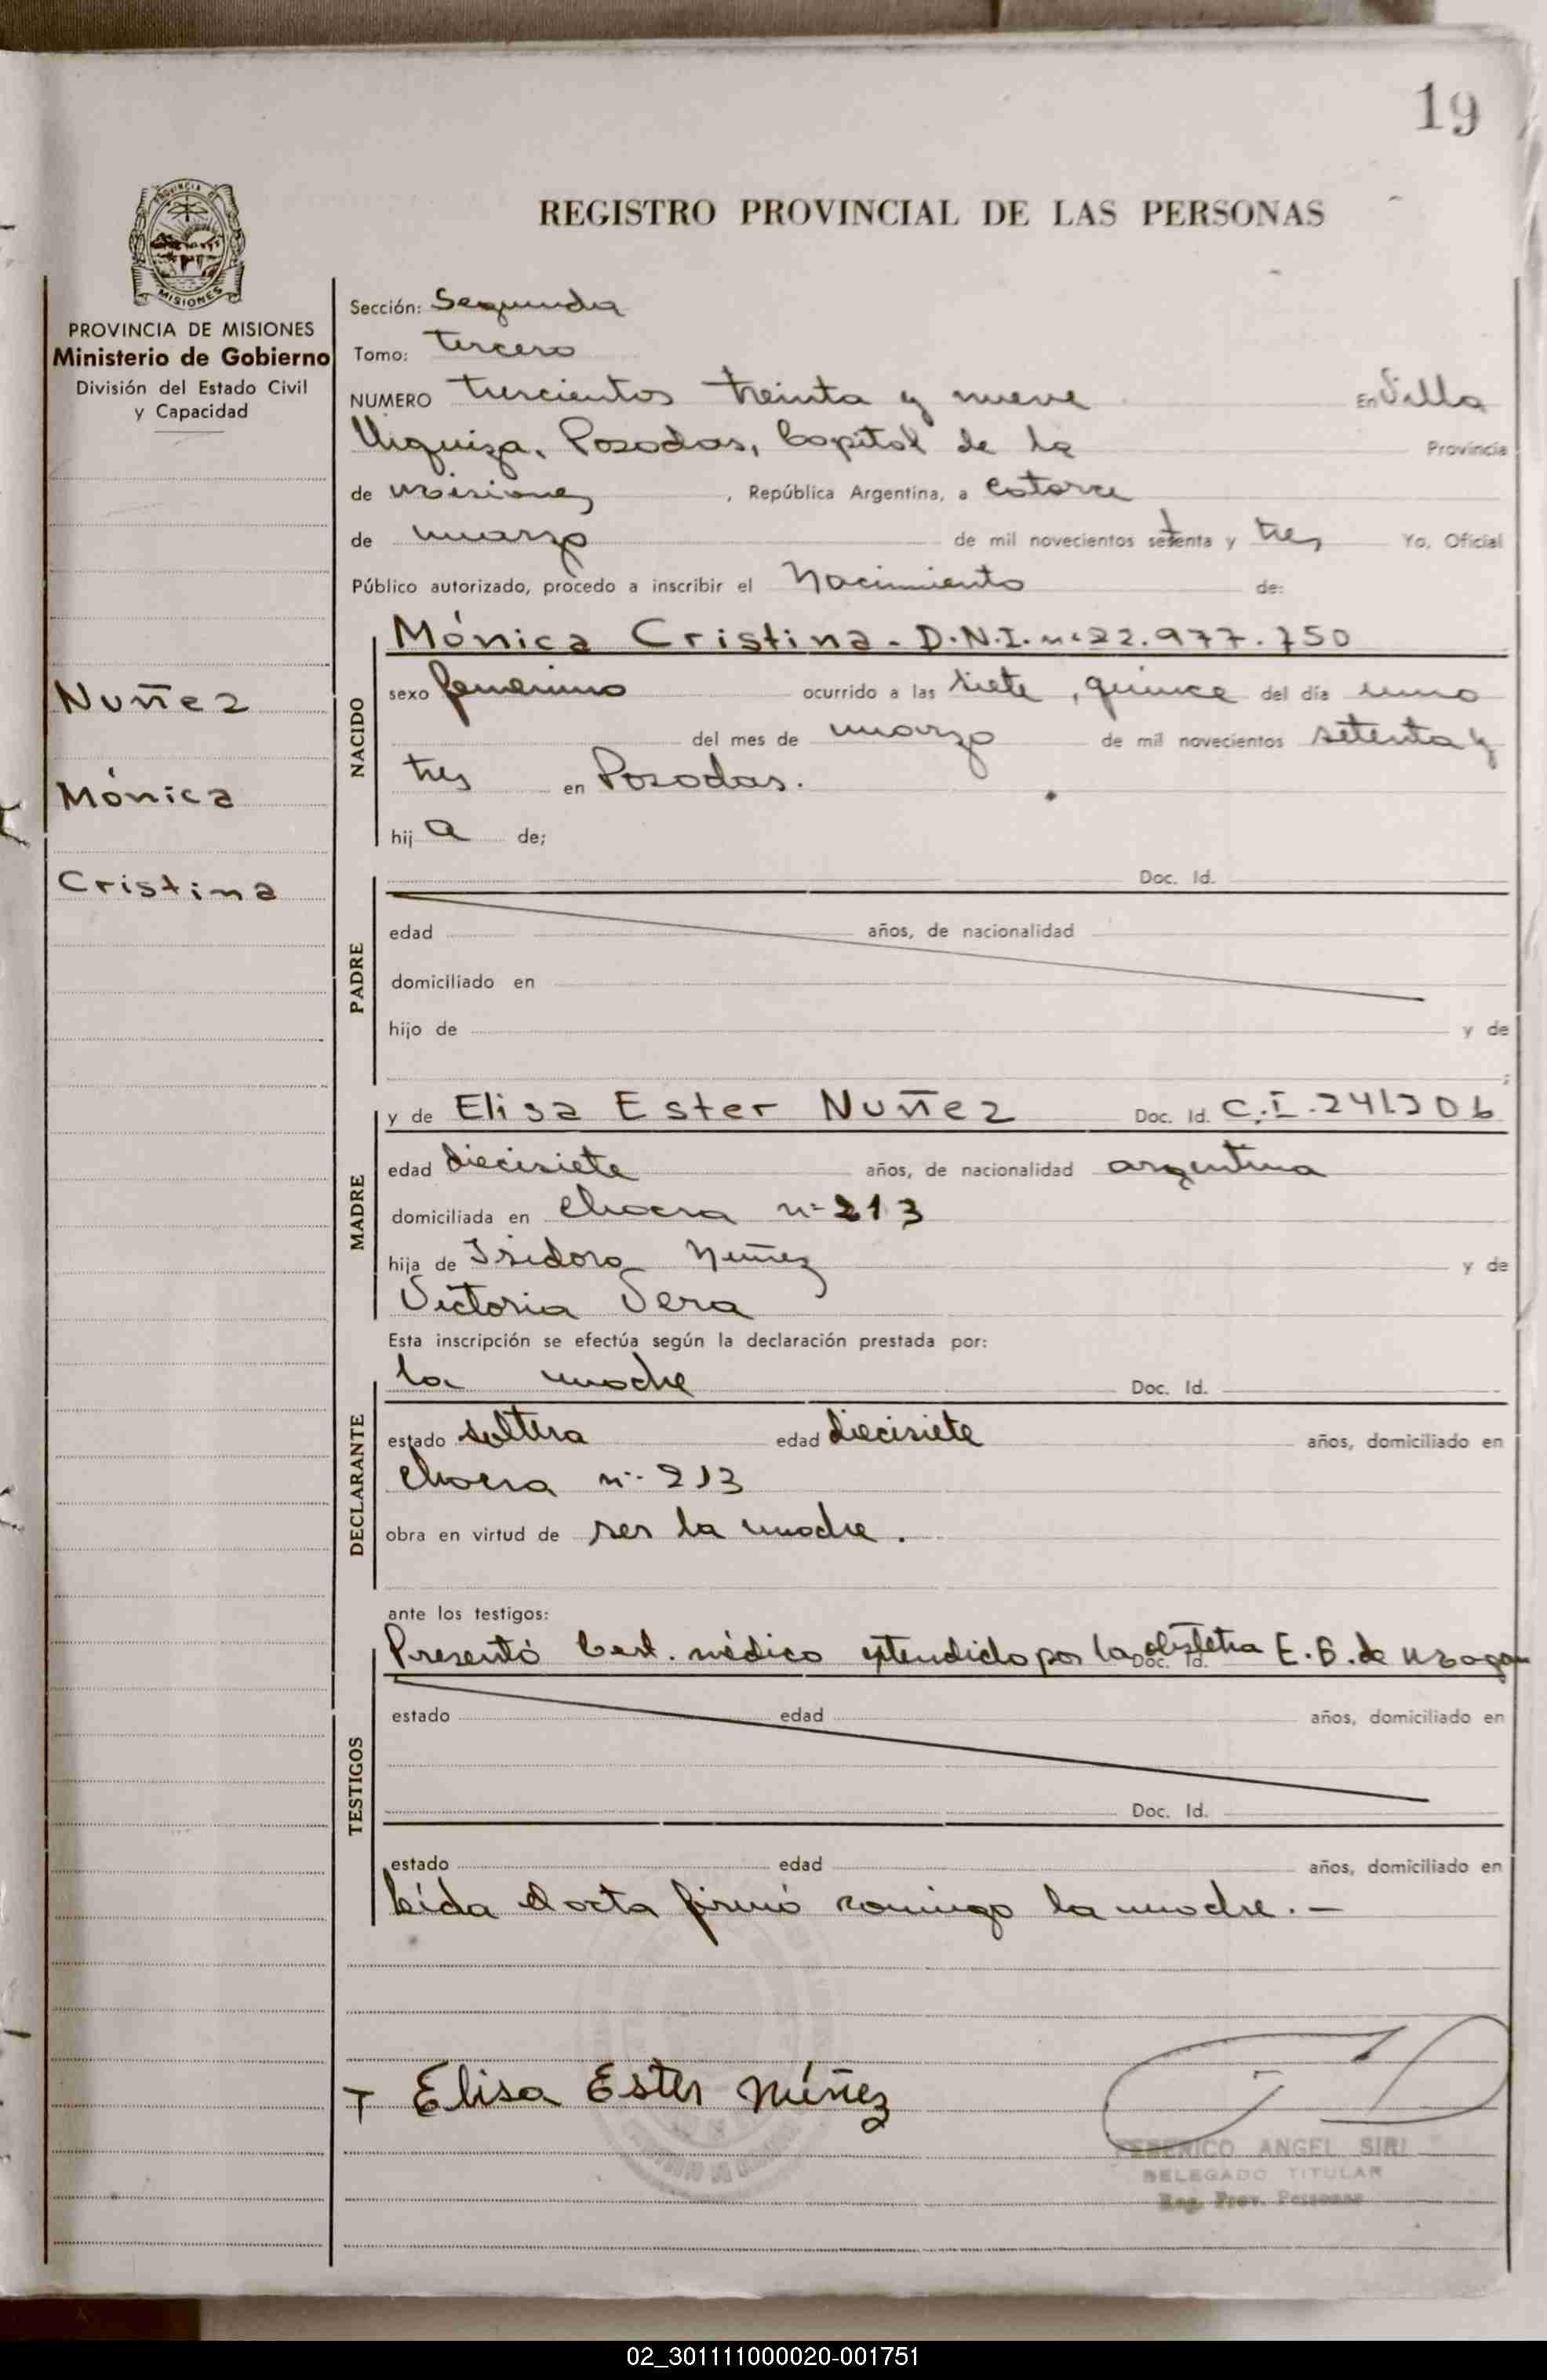 19
REGISTRO PROVINCIAL DE LAS PERSONAS
PROVINCIA DE MISIONES
MISIONES
PROVINCIA DE MISIONES
Ministerio de Gobierno
División del Estado Civil
y Capacidad
Nuñez
Mónica
Cristina
Sección: Segunda
Tomo: tercero
NUMERO trescientos treinta y nueve En Villa
Urquiza, Posadas, Capital de la Provincia
de Misiones, República Argentina, a catorce
de marzo de mil novecientos setenta y tres Yo, Oficial
Público autorizado, procedo a inscribir el Nacimiento de:
NACIDO
Mónica Cristina - D.N.I. nº 22.977.750
sexo femenino ocurrido a las siete, quince del día uno
del mes de marzo de mil novecientos setenta y
tres en Posadas.
hij a de;
PADRE
Doc. Id.
edad años, de nacionalidad
domiciliado en
hijo de y de
;
MADRE
y de Elisa Ester Nuñez Doc. Id. C.I.
edad diecisiete años, de nacionalidad argentina
domiciliada en chacra nº 213
hija de Isidoro Nuñez y de
Victoria Vera
Esta inscripción se efectúa según la declaración prestada por:
DECLARANTE
la madre Doc. Id.
estado soltera edad diecisiete años, domiciliado en
chacra nº 213
obra en virtud de ser la madre.
ante los testigos:
TESTIGOS
Presentó Cert. médico extendido por la obstetra E. B. de Doc. Id.
estado edad años, domiciliado en
Doc. Id.
estado edad años, domiciliado en
Leída el acta firmó conmigo la madre. -
Elisa Ester Núñez
FEDERICO ANGEL SIRI
DELEGADO TITULAR
Reg. Prov. Personas
02_301111000020-001751